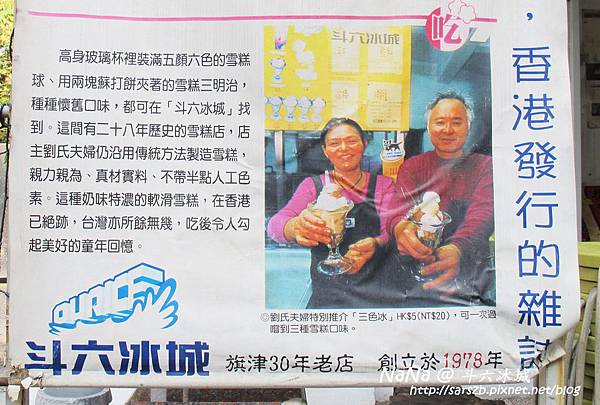 斗六冰城
吃
，香港發行的雜誌
高身玻璃杯裡裝滿五顏六色的雪糕
球、用兩塊蘇打餅夾著的雪糕三明治，
種種懷舊口味，都可在「斗六冰城」找
到。這間有二十八年歷史的雪糕店，店
主劉氏夫婦仍沿用傳統方法製造雪糕，
親力親為、真材實料、不帶半點人工色
素。這種奶味特濃的軟滑雪糕，在香港
已絕跡，台灣亦所餘無幾，吃後令人勾
起美好的童年回憶。
◎劉氏夫婦特別推介「三色冰」HK$5(NT$20)，可一次過
嚐到三種雪糕口味。
斗六冰城
旗津30年老店 創立於1978年
NaNa @ 斗六冰城
http://sarszb.pixnet.net/blog